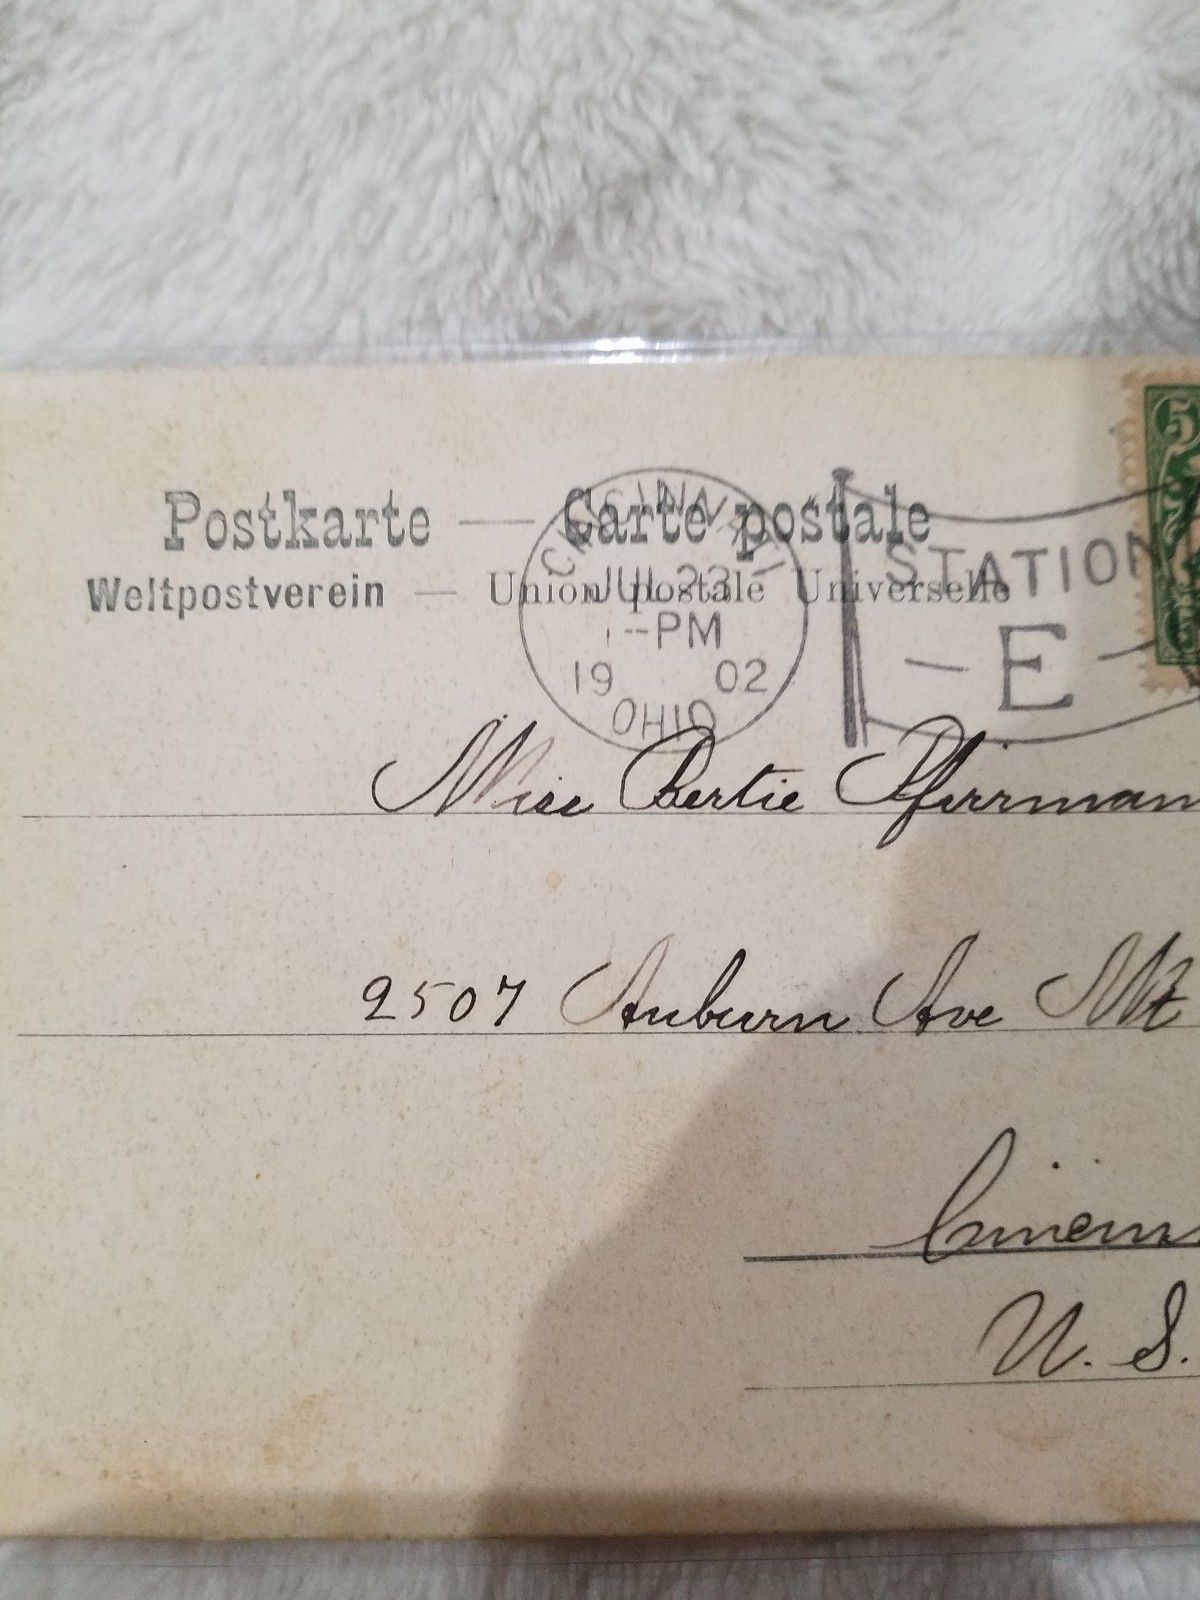 Postkarte — Carte postale
Weltpostverein — Union postale Universelle
CINCINNATI
JUL 23
1--PM
19 02
OHIO
STATION
— E —
5
Miss Bertie Pfirrman
2507 Auburn Ave Mt
Cincin
U. S.